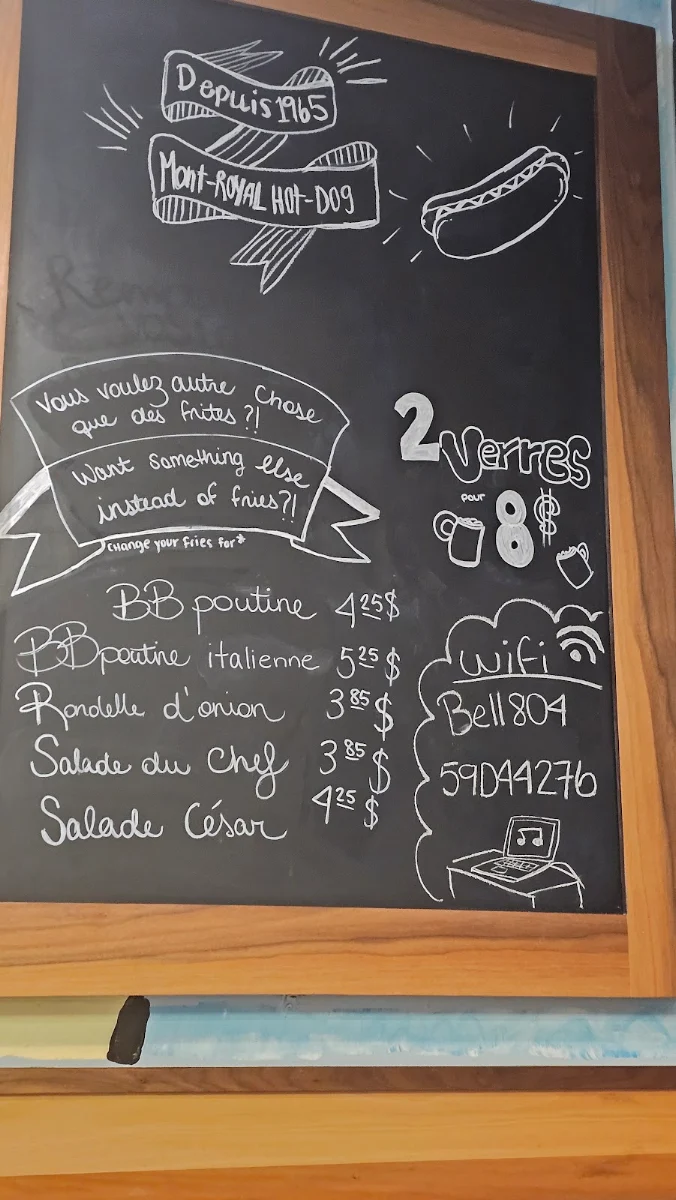 Depuis 1965
Mont-ROYAL HOt-DOg
Vous voulez autre chose
que des frites ?!
Want something else
instead of fries?!
change your fries for*
BB poutine 4 25 $
BB poutine italienne 5 25 $
Rondelle d'onion 3 85 $
Salade du chef 3 85 $
Salade César 4 25 $
2 Verres
pour 8 $
Wifi
Bell804
59D44276